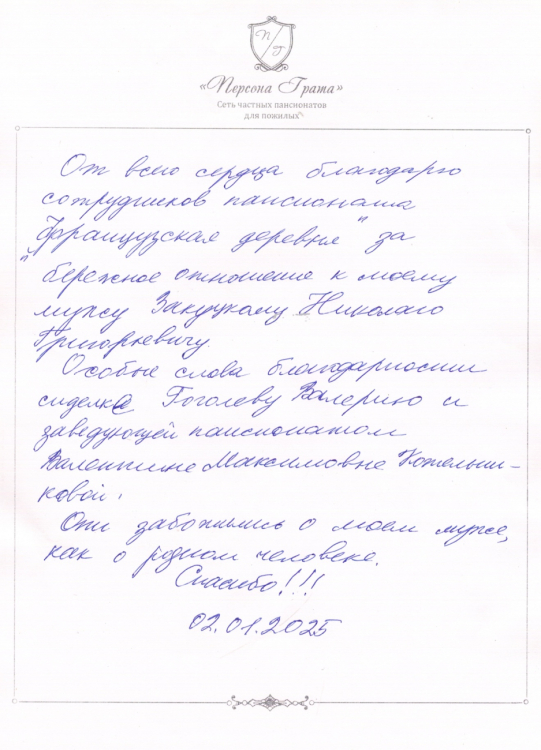 П/Г
«Персона Грата»
Сеть частных пансионатов
для пожилых
От всего сердца благодарю
сотрудников пансионата
"Французская деревня" за
бережное отношение к моему
мужу Закуцкому Николаю
Григорьевичу
Особые слова благодарности
сиделке Гоголеву Валерию и
заведующей пансионатом
Валентине Максимовне Котельни-
ковой.
Они заботились о моем муже,
как о родном человеке.
Спасибо!!!
02.01.2025